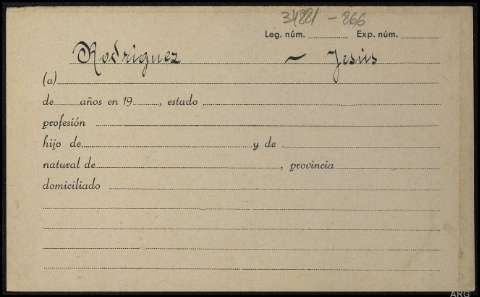 34881 - 866
Leg. núm. Exp. núm.
Rodríguez ~ Jesús
(a)
de años en 19 , estado
profesión
hijo de y de
natural de , provincia
domiciliado
ARG